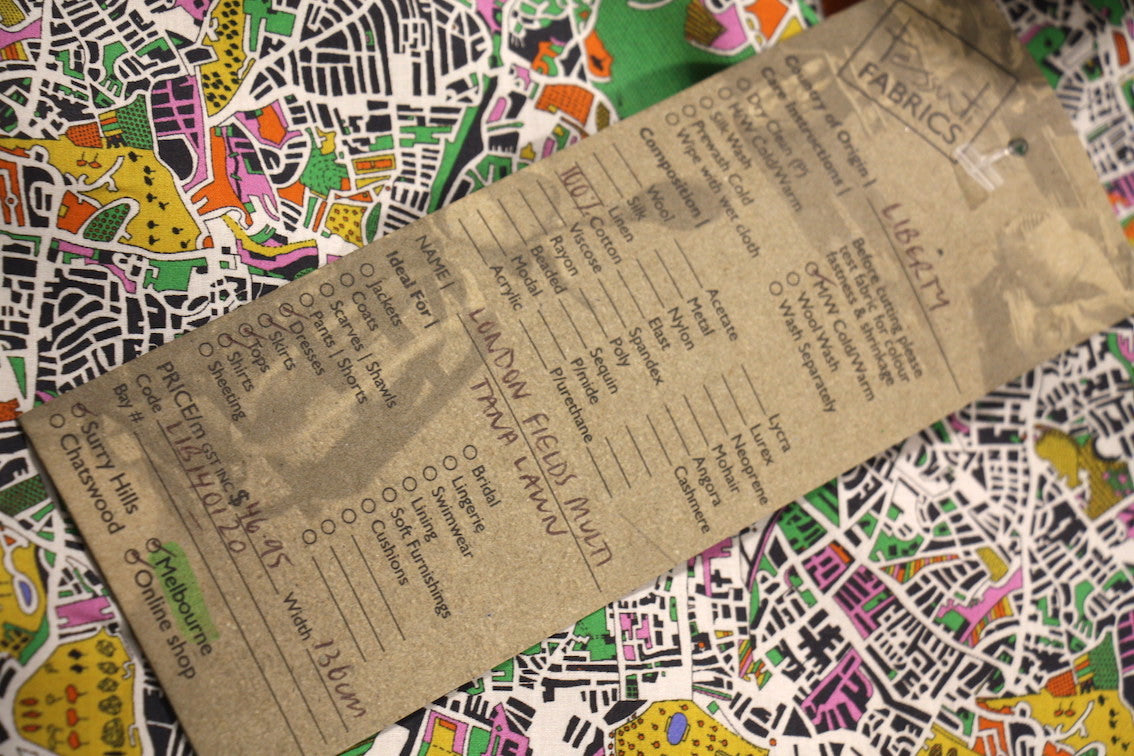 FABRICS
Country of Origin | LIBERTY
Care Instructions |
Dry Clean(P)
H/W Cold/Warm
Silk Wash
Prewash Cold
Wipe with wet cloth
Before cutting please
test fabric for colour
fastness & shrinkage
M/W Cold/Warm
Wool Wash
Wash Separately
Composition |
Wool
Silk
Linen
100% Cotton
Viscose
Rayon
Beaded
Modal
Acrylic
Acetate
Metal
Nylon
Elast
Spandex
Poly
Sequin
P/mide
P/urethane
Lycra
Lurex
Neoprene
Mohair
Angora
Cashmere
NAME | LONDON FIELDS MULTI
TANA LAWN
Ideal For |
Jackets
Coats
Scarves | Shawls
Pants | Shorts
Dresses
Skirts
Tops
Shirts
Sheeting
Bridal
Lingerie
Swimwear
Lining
Soft Furnishings
Cushions
PRICE/m GST INC. $46.95 Width 136cm
Code LIB140120
Bay #
Surry Hills
Chatswood
Melbourne
Online shop